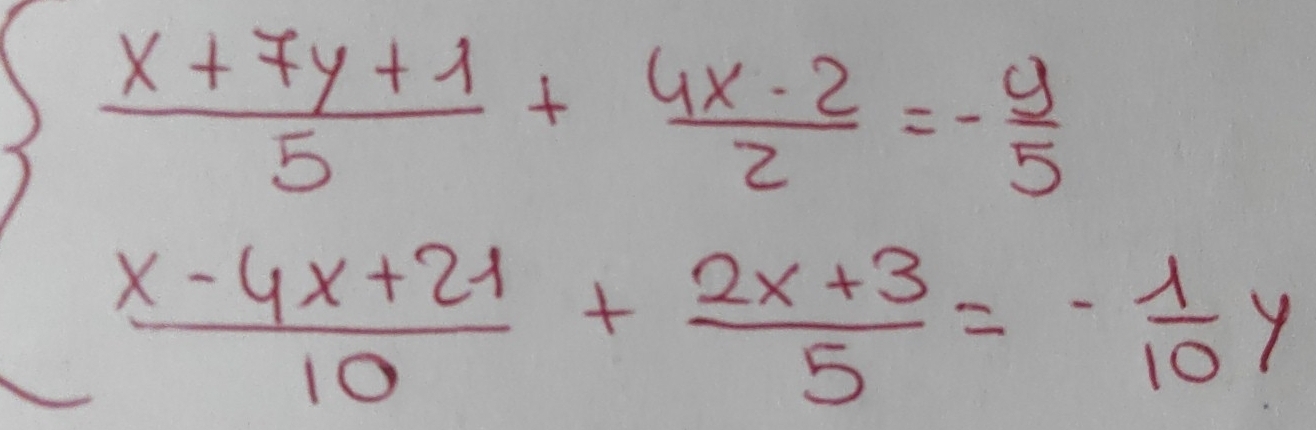 x + 7y + 1 / 5 + 4x - 2 / 2 = - y / 5
x - 4x + 21 / 10 + 2x + 3 / 5 = - 1 / 10 y